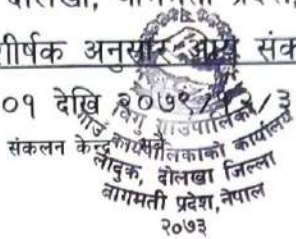 दोलखा,
शीर्षक अनुसार आय संक
०१ देखि २०७९/१२/३
संकलन केन्द्र
विगु गाउँपालिका
गाउँ कार्यपालिकाको कार्यालय
लादुक, दोलखा जिल्ला
बागमती प्रदेश, नेपाल
२०७३